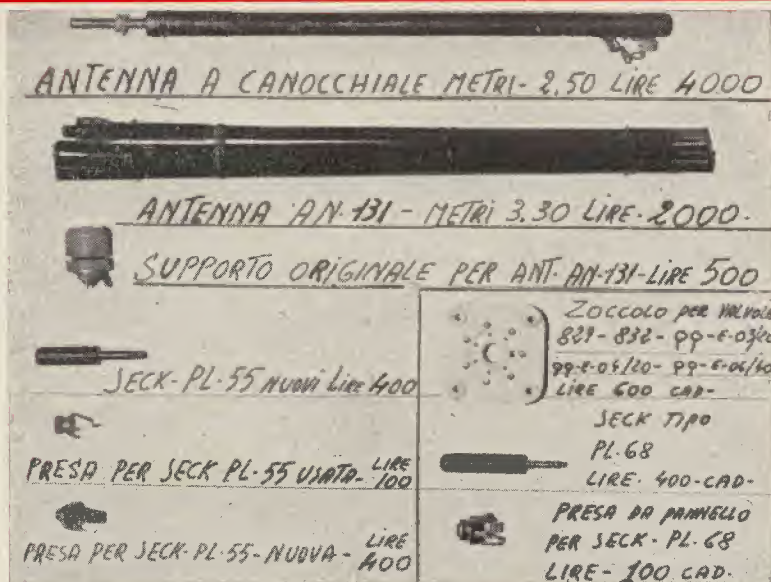 ANTENNA A CANOCCHIALE METRI- 2,50 LIRE 4000
ANTENNA AN-131 - METRI 3.30 LIRE-2000-
SUPPORTO ORIGINALE PER ANT. AN-131-LIRE 500
JECK-PL-55 NUOVI LIRE 400
PRESA PER JECK PL-55 USATA- LIRE 100
PRESA PER JECK-PL-55-NUOVA- LIRE 400
ZOCCOLO PER VALVOLE
829- 832- QQ-E-03/20
QQ-E-04/20- QQ-E-06/40
LIRE 600 CAD-
JECK TIPO
PL-68
LIRE- 400-CAD-
PRESA DA PANNELLO
PER JECK- PL-68
LIRE- 100 CAD-